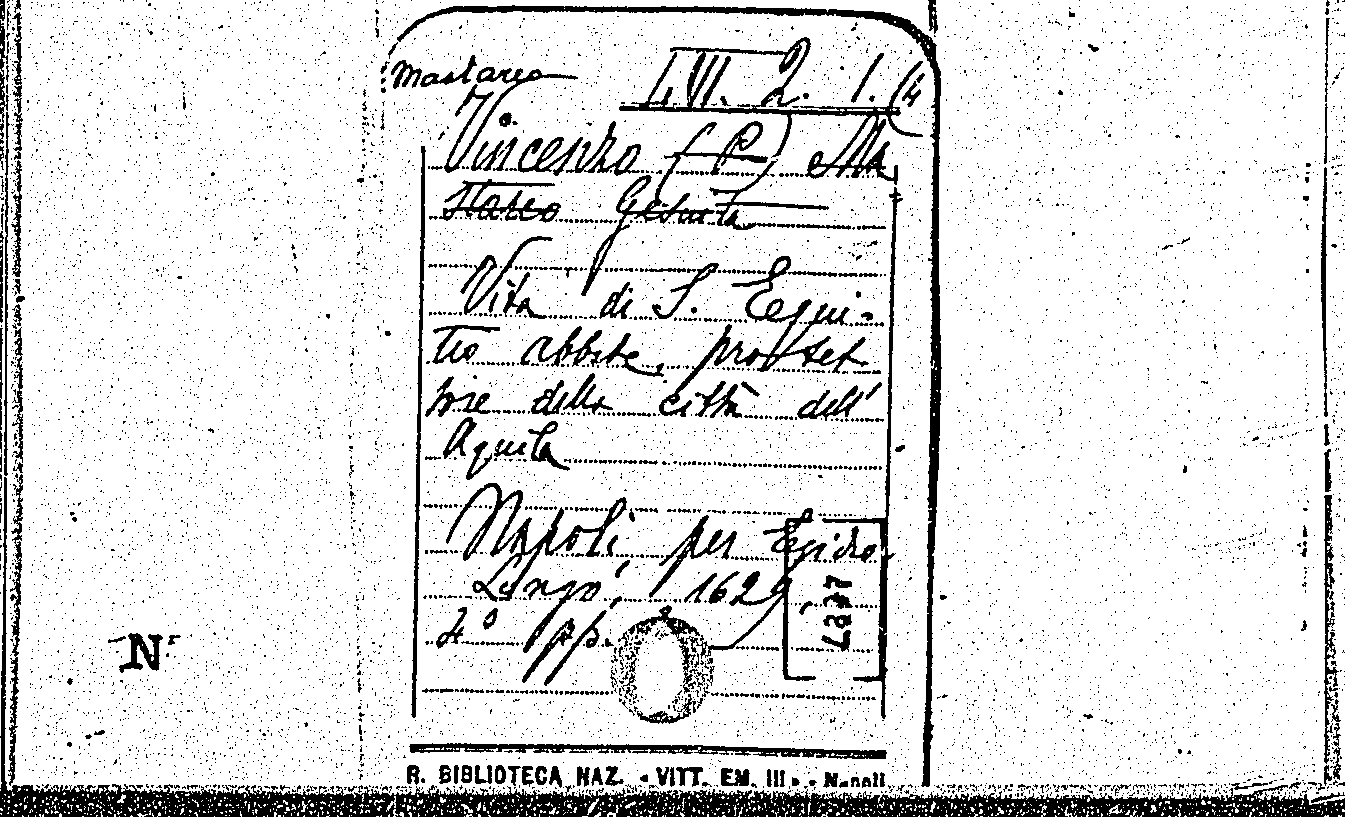 Mastareo LVI. 2. 1. (4
Vincenzo (P) Ma
stareo Gesuita
Vita di S. Equi-
tio abbate, protet
tore della città dell'
Aquila
Napoli, per Egidio
Longo, 1629,
4° pp.
N
R. BIBLIOTECA NAZ. « VITT. EM. III » - Napoli